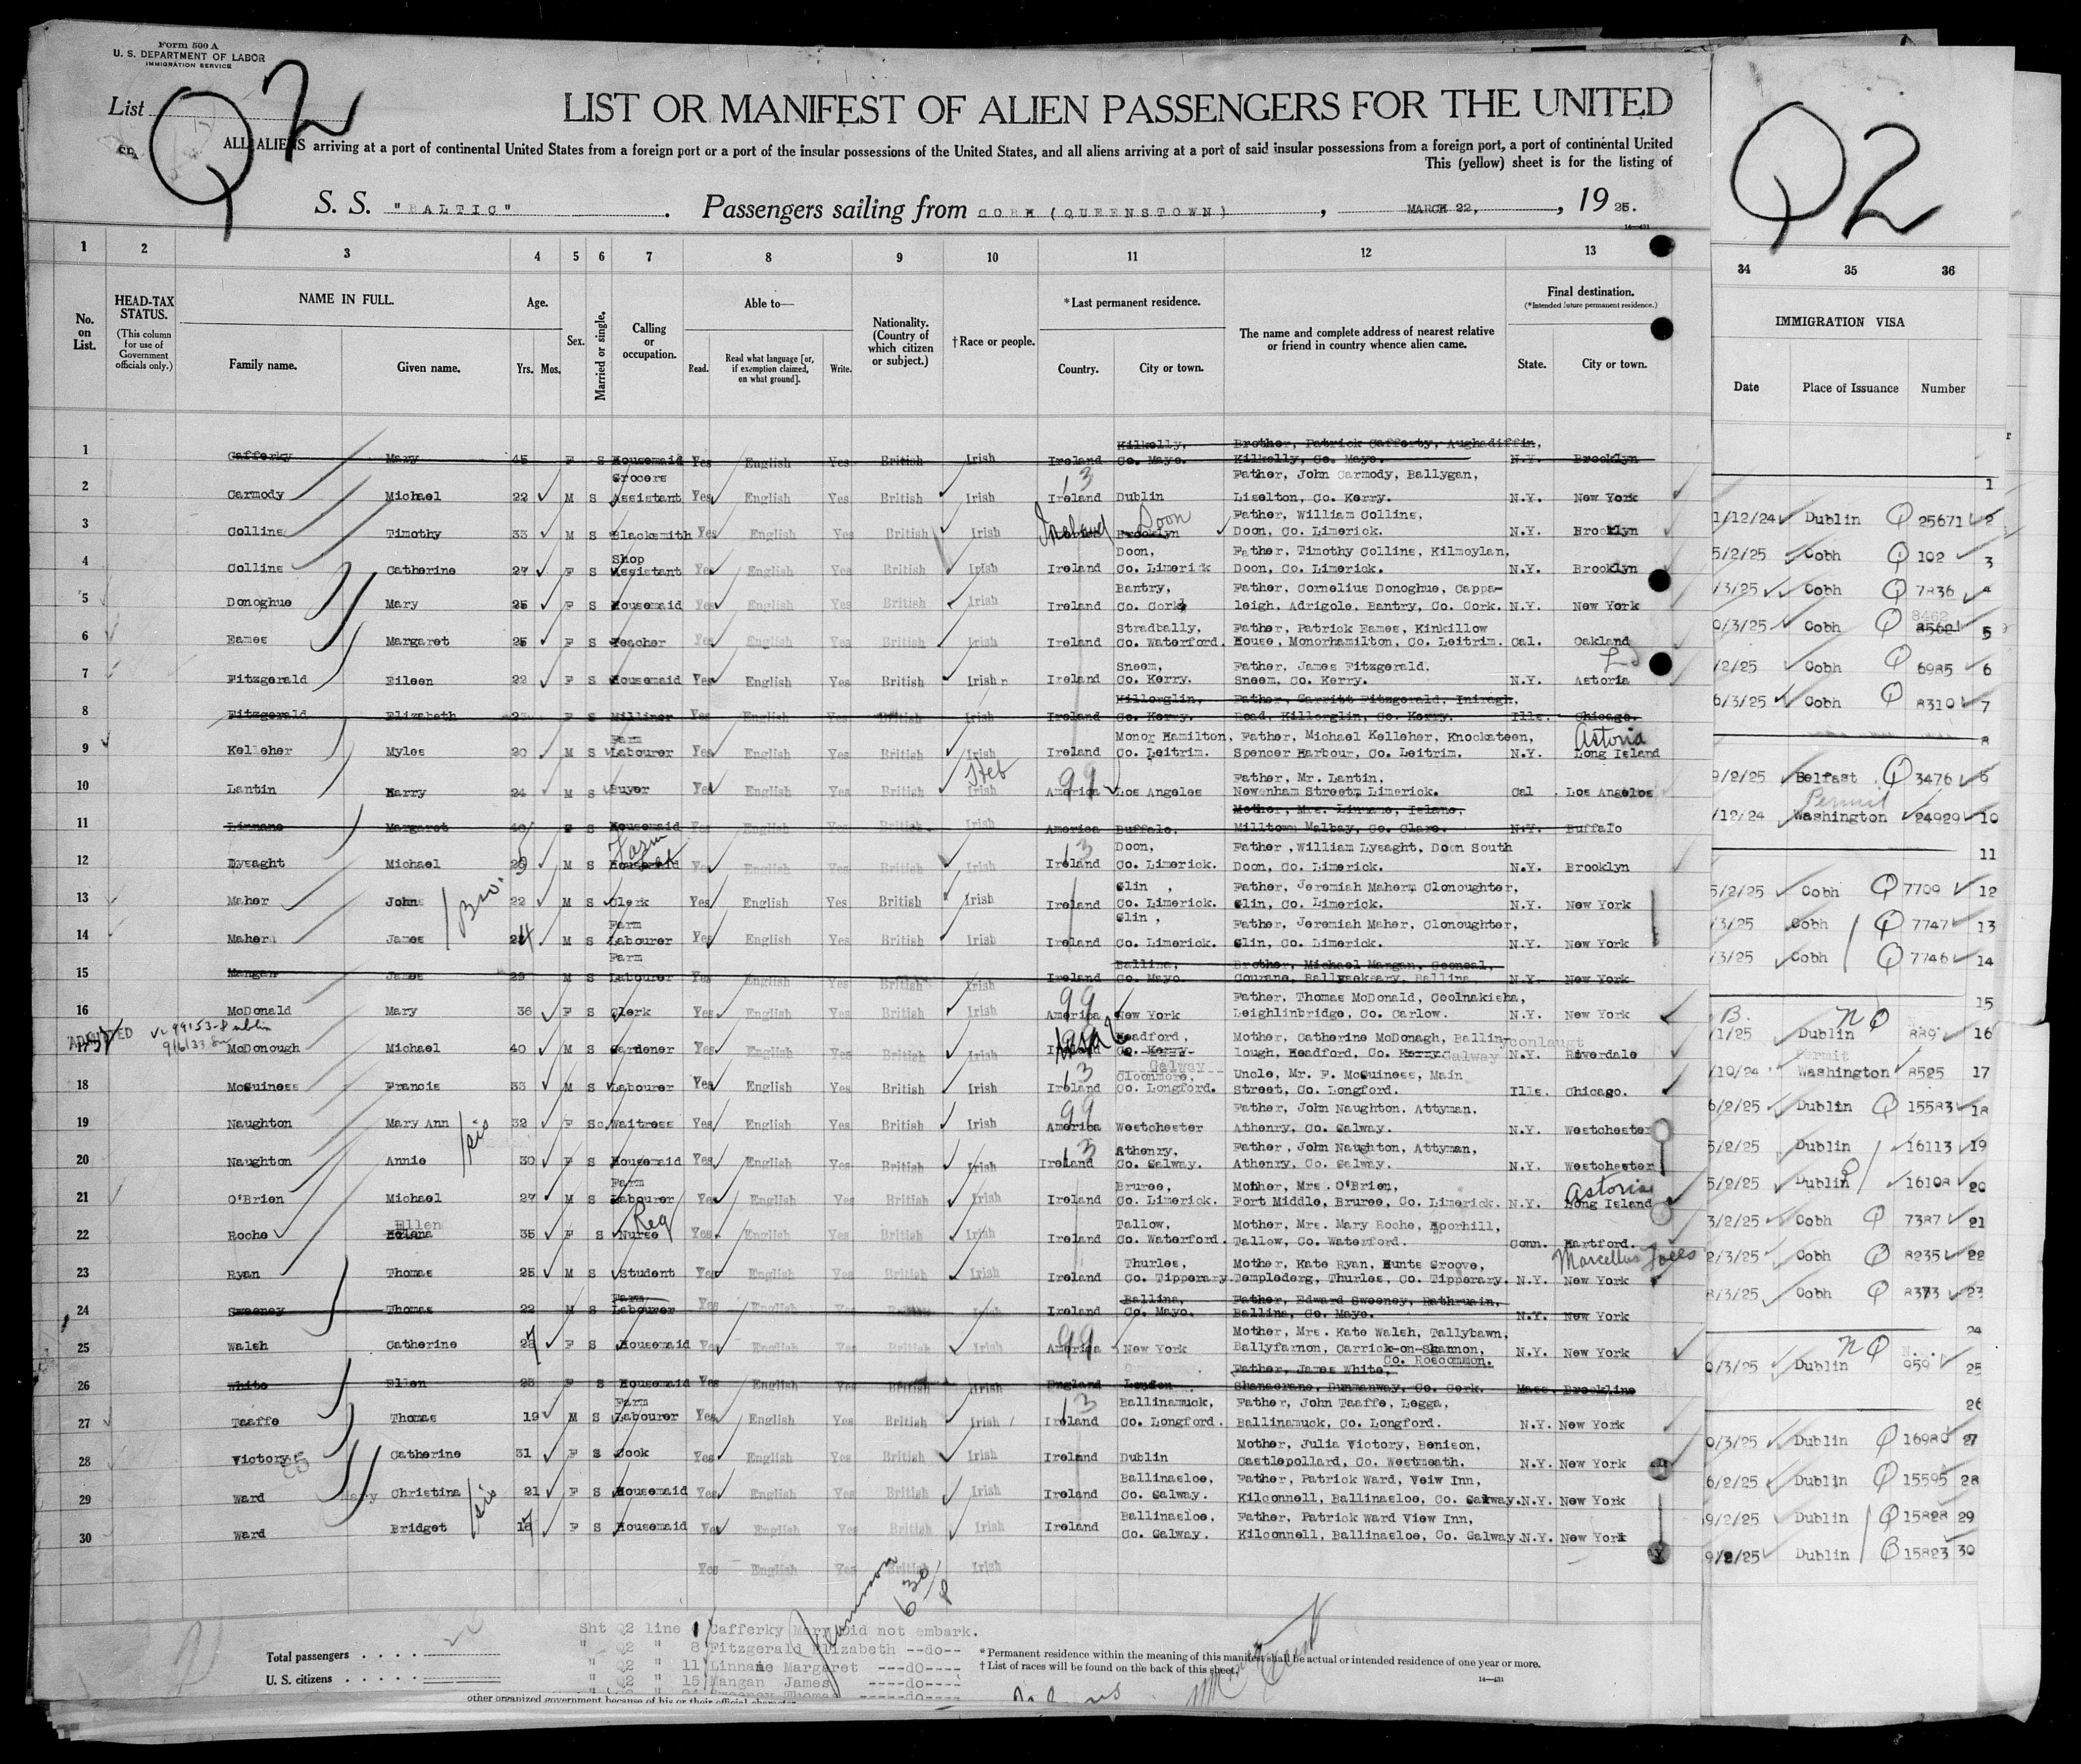 Form 500 A
U. S. DEPARTMENT OF LABOR
IMMIGRATION SERVICE
List
Q2
Q2
LIST OR MANIFEST OF ALIEN PASSENGERS FOR THE UNITED
ALL ALIENS arriving at a port of continental United States from a foreign port or a port of the insular possessions of the United States, and all aliens arriving at a port of said insular possessions from a foreign port, a port of continental United
This (yellow) sheet is for the listing of
S. S. "BALTIC" . Passengers sailing from COBH (QUEENSTOWN) , MARCH 22, , 19 25.
14—431
1 2 3 4 5 6 7 8 9 10 11 12 13 34 35 36
No. on List. HEAD-TAX STATUS. (This column for use of Government officials only.) NAME IN FULL. Age. Sex. Married or single. Calling or occupation. Able to— Nationality. (Country of which citizen or subject.) †Race or people. *Last permanent residence. The name and complete address of nearest relative or friend in country whence alien came. Final destination. (*Intended future permanent residence.) IMMIGRATION VISA
Family name. Given name. Yrs. Mos. Read. Read what language [or, if exemption claimed, on what ground]. Write. Country. City or town. State. City or town. Date Place of Issuance Number
1 Cafferky Mary 45 F S Housemaid Yes English Yes British Irish Ireland Kilkelly, Co. Mayo. Brother, Patrick Cafferty, Aughadiffin, Kilkelly, Co. Mayo. N.Y. Brooklyn 1
2 Carmody Michael 22 M S Grocers Assistant Yes English Yes British Irish 13 Ireland Dublin Father, John Carmody, Ballygan, Liselton, Co. Kerry. N.Y. New York 1/12/24 Dublin Q 25671 2
3 Collins Timothy 33 M S Blacksmith Yes English Yes British Irish Ireland Doon Brooklyn Father, William Collins, Doon, Co. Limerick. N.Y. Brooklyn 5/2/25 Cobh Q 102 3
4 Collins Catherine 27 F S Shop Assistant Yes English Yes British Irish Ireland Doon, Co. Limerick Father, Timothy Collins, Kilmoylan, Doon, Co. Limerick. N.Y. Brooklyn /3/25 Cobh Q 7836 4
5 Donoghue Mary 25 F S Housemaid Yes English Yes British Irish Ireland Bantry, Co. Cork Father, Cornelius Donoghue, Cappa-leigh, Adrigole, Bantry, Co. Cork. N.Y. New York 0/3/25 Cobh Q 8462 8562 5
6 Eames Margaret 25 F S Teacher Yes English Yes British Irish Ireland Stradbally, Co. Waterford. Father, Patrick Eames, Kinkillow House, Monorhamilton, Co. Leitrim. Cal. Oakland /2/25 Cobh Q 6985 6
7 Fitzgerald Eileen 22 F S Housemaid Yes English Yes British Irish Ireland Sneem, Co. Kerry. Father, James Fitzgerald. Sneem, Co. Kerry. N.Y. Astoria 6/3/25 Cobh Q 8310 7
8 Fitzgerald Elizabeth F S Milliner Yes English Yes British Irish Ireland Killorglin, Co. Kerry. Father, Garritt Fitzgerald, Iniragh, Road, Killorglin, Co. Kerry. Ills. Chicago. 8
9 Kelleher Myles 20 M S Farm Labourer Yes English Yes British Irish Ireland Monor Hamilton, Co. Leitrim. Father, Michael Kelleher, Knockateen, Spencer Harbour, Co. Leitrim. N.Y. Astoria Long Island 9/2/25 Belfast Q 3476
10 Lantin Harry 24 M S Buyer Yes English Yes British Heb Irish 99 America Los Angeles Father, Mr. Lantin, Newenham Street, Limerick. Cal . Los Angelos /12/24 Permit Washington 24929 10
11 Linnane Margaret 40 F S Housemaid Yes English Yes British Irish America Buffalo, Mother, Mrs. Linnane, Islane, Milltown Malbay, Co. Clare. N.Y. Buffalo 11
12 Lysaght Michael M S Farm Housemaid Yes English Yes British Irish 13 Ireland Doon, Co. Limerick. Father ,William Lysaght, Doon South Doon, Co. Limerick. N.Y. Brooklyn 5/2/25 Cobh Q 7709 12
13 Maher John Bro. 22 M S Clerk Yes English Yes British Irish Ireland Glin , Co. Limerick. Father, Jeremiah Maher, Clonoughter, Glin, Co. Limerick. N.Y. New York /3/25 Cobh Q 7747 13
14 Maher James 24 M S Farm Labourer Yes English Yes British Irish Ireland Glin , Co. Limerick. Father, Jeremiah Maher, Clonoughter, Glin, Co. Limerick. N.Y. New York /3/25 Cobh Q 7746 14
15 Mangan James 29 M S Farm Labourer Yes English Yes British Irish Ireland Ballina, Co. Mayo. Brother, Michael Mangan, Ballina. N.Y. New York 15
16 McDonald Mary 36 F S Clerk Yes English Yes British Irish 99 America New York Father, Thomas McDonald, Coolnakisha, Leighlinbridge, Co. Carlow. N.Y. New York /1/25 Dublin NQ 889 16
17 ADMITTED McDonough Michael 40 M S Gardener Yes English Yes British Irish Ireland USA Headford, Co. Kerry Galway Mother, Catherine McDonagh, Ballin-conlaugt lough, Headford, Co. Kerry Galway N.Y. Riverdale /10/24 Permit Washington 8525 17
18 McGuiness Francis 33 M S Labourer Yes English Yes British Irish 13 Ireland Cloonmore, Co. Longford. Uncle, Mr. F. McGuiness, Main Street, Co. Longford. Ills. Chicago. 6/2/25 Dublin Q 15583 18
19 Naughton Mary Ann sis 32 F S Waitress Yes English Yes British Irish 99 America Westchester Father, John Naughton, Attyman, Athenry, Co. Galway. N.Y. Westchester 5/2/25 Dublin 16113 19
20 Naughton Annie 30 F S Housemaid Yes English Yes British Irish 13 Ireland Athenry, Co. Galway. Father, John Naughton, Attyman, Athenry, Co. Galway. N.Y. Westchester 5/2/25 Dublin Q 16108 20
21 O'Brien Michael 27 M S Farm Labourer Yes English Yes British Irish Ireland Bruree, Co. Limerick. Mother, Mrs. O'Brien, Fort Middle, Bruree, Co. Limerick. N.Y. Astoria Long Island 3/2/25 Cobh Q 7387 21
22 Roche Ellen Helena 35 F S Reg Nurse Yes English Yes British Irish Ireland Tallow, Co. Waterford. Mother, Mrs. Mary Roche, Moorhill, Tallow, Co. Waterford. Conn. Hartford. 2/3/25 Cobh Q 8235 22
23 Ryan Thomas 25 M S Student Yes English Yes British Irish Ireland Thurles, Co. Tipperary. Mother, Kate Ryan, Hunts Groove, Templederg, Thurles, Co. Tipperary. N.Y. Marcellus Falls New York 8/3/25 Cobh Q 8373 23
24 Sweeney Thomas 22 M S Farm Labourer Yes English Yes British Ireland Ballina, Co. Mayo. Father, Edward Sweeney, Rathruain, Ballina, Co. Mayo. N.Y. New York 24
25 Walsh Catherine F S Housemaid Yes English Yes British Irish 99 America New York Mother, Mrs. Kate Walsh, Tallybawn, Ballyfarnon, Carrick-on-Shannon, Co. Roscommon. N.Y. New York 0/3/25 Dublin NQ 959 25
26 White Ellen 23 F S Housemaid Yes English Yes British Irish England London Father, James White, Shanacrane, Dunmanway, Co. Cork. Mass. Brookline 26
27 Taaffe Thomas 19 M S Farm Labourer Yes English Yes British Irish 13 Ireland Ballinamuck, Co. Longford. Father, John Taaffe, Legga, Ballinamuck, Co. Longford. N.Y. New York 0/3/25 Dublin Q 16980 27
28 Victory Catherine 31 F S Cook Yes English Yes British Irish Ireland Dublin Mother, Julia Victory, Benison, Castlepollard, Co. Westmeath. N.Y. New York 6/2/25 Dublin Q 15595 28
29 Ward Mary Christina sis 21 F S Housemaid Yes English Yes British Irish Ireland Ballinasloe, Co. Galway. Father, Patrick Ward, Veiw Inn, Kilconnell, Ballinasloe, Co. Galway. N.Y. New York 9/2/25 Dublin Q 15828 29
30 Ward Bridget F S Housemaid Yes English Yes British Irish Ireland Ballinasloe, Co. Galway. Father, Patrick Ward View Inn, Kilconnell, Ballinasloe, Co. Galway. N.Y. New York 9/2/25 Dublin Q 15823 30
Yes English Yes British Irish
Sht Q2 line 1 Cafferky Mary Did not embark.
" Q2 " 8 Fitzgerald Elizabeth --do--
" Q2 " 11 Linnane Margaret ---do----
" Q2 " 15 Mangan James ----do----
Sweeney Thomas -----do----
Total passengers . . . . .
U. S. citizens . . . . .
* Permanent residence within the meaning of this manifest shall be actual or intended residence of one year or more.
† List of races will be found on the back of this sheet.
14—431
other organized government because of his or their official character